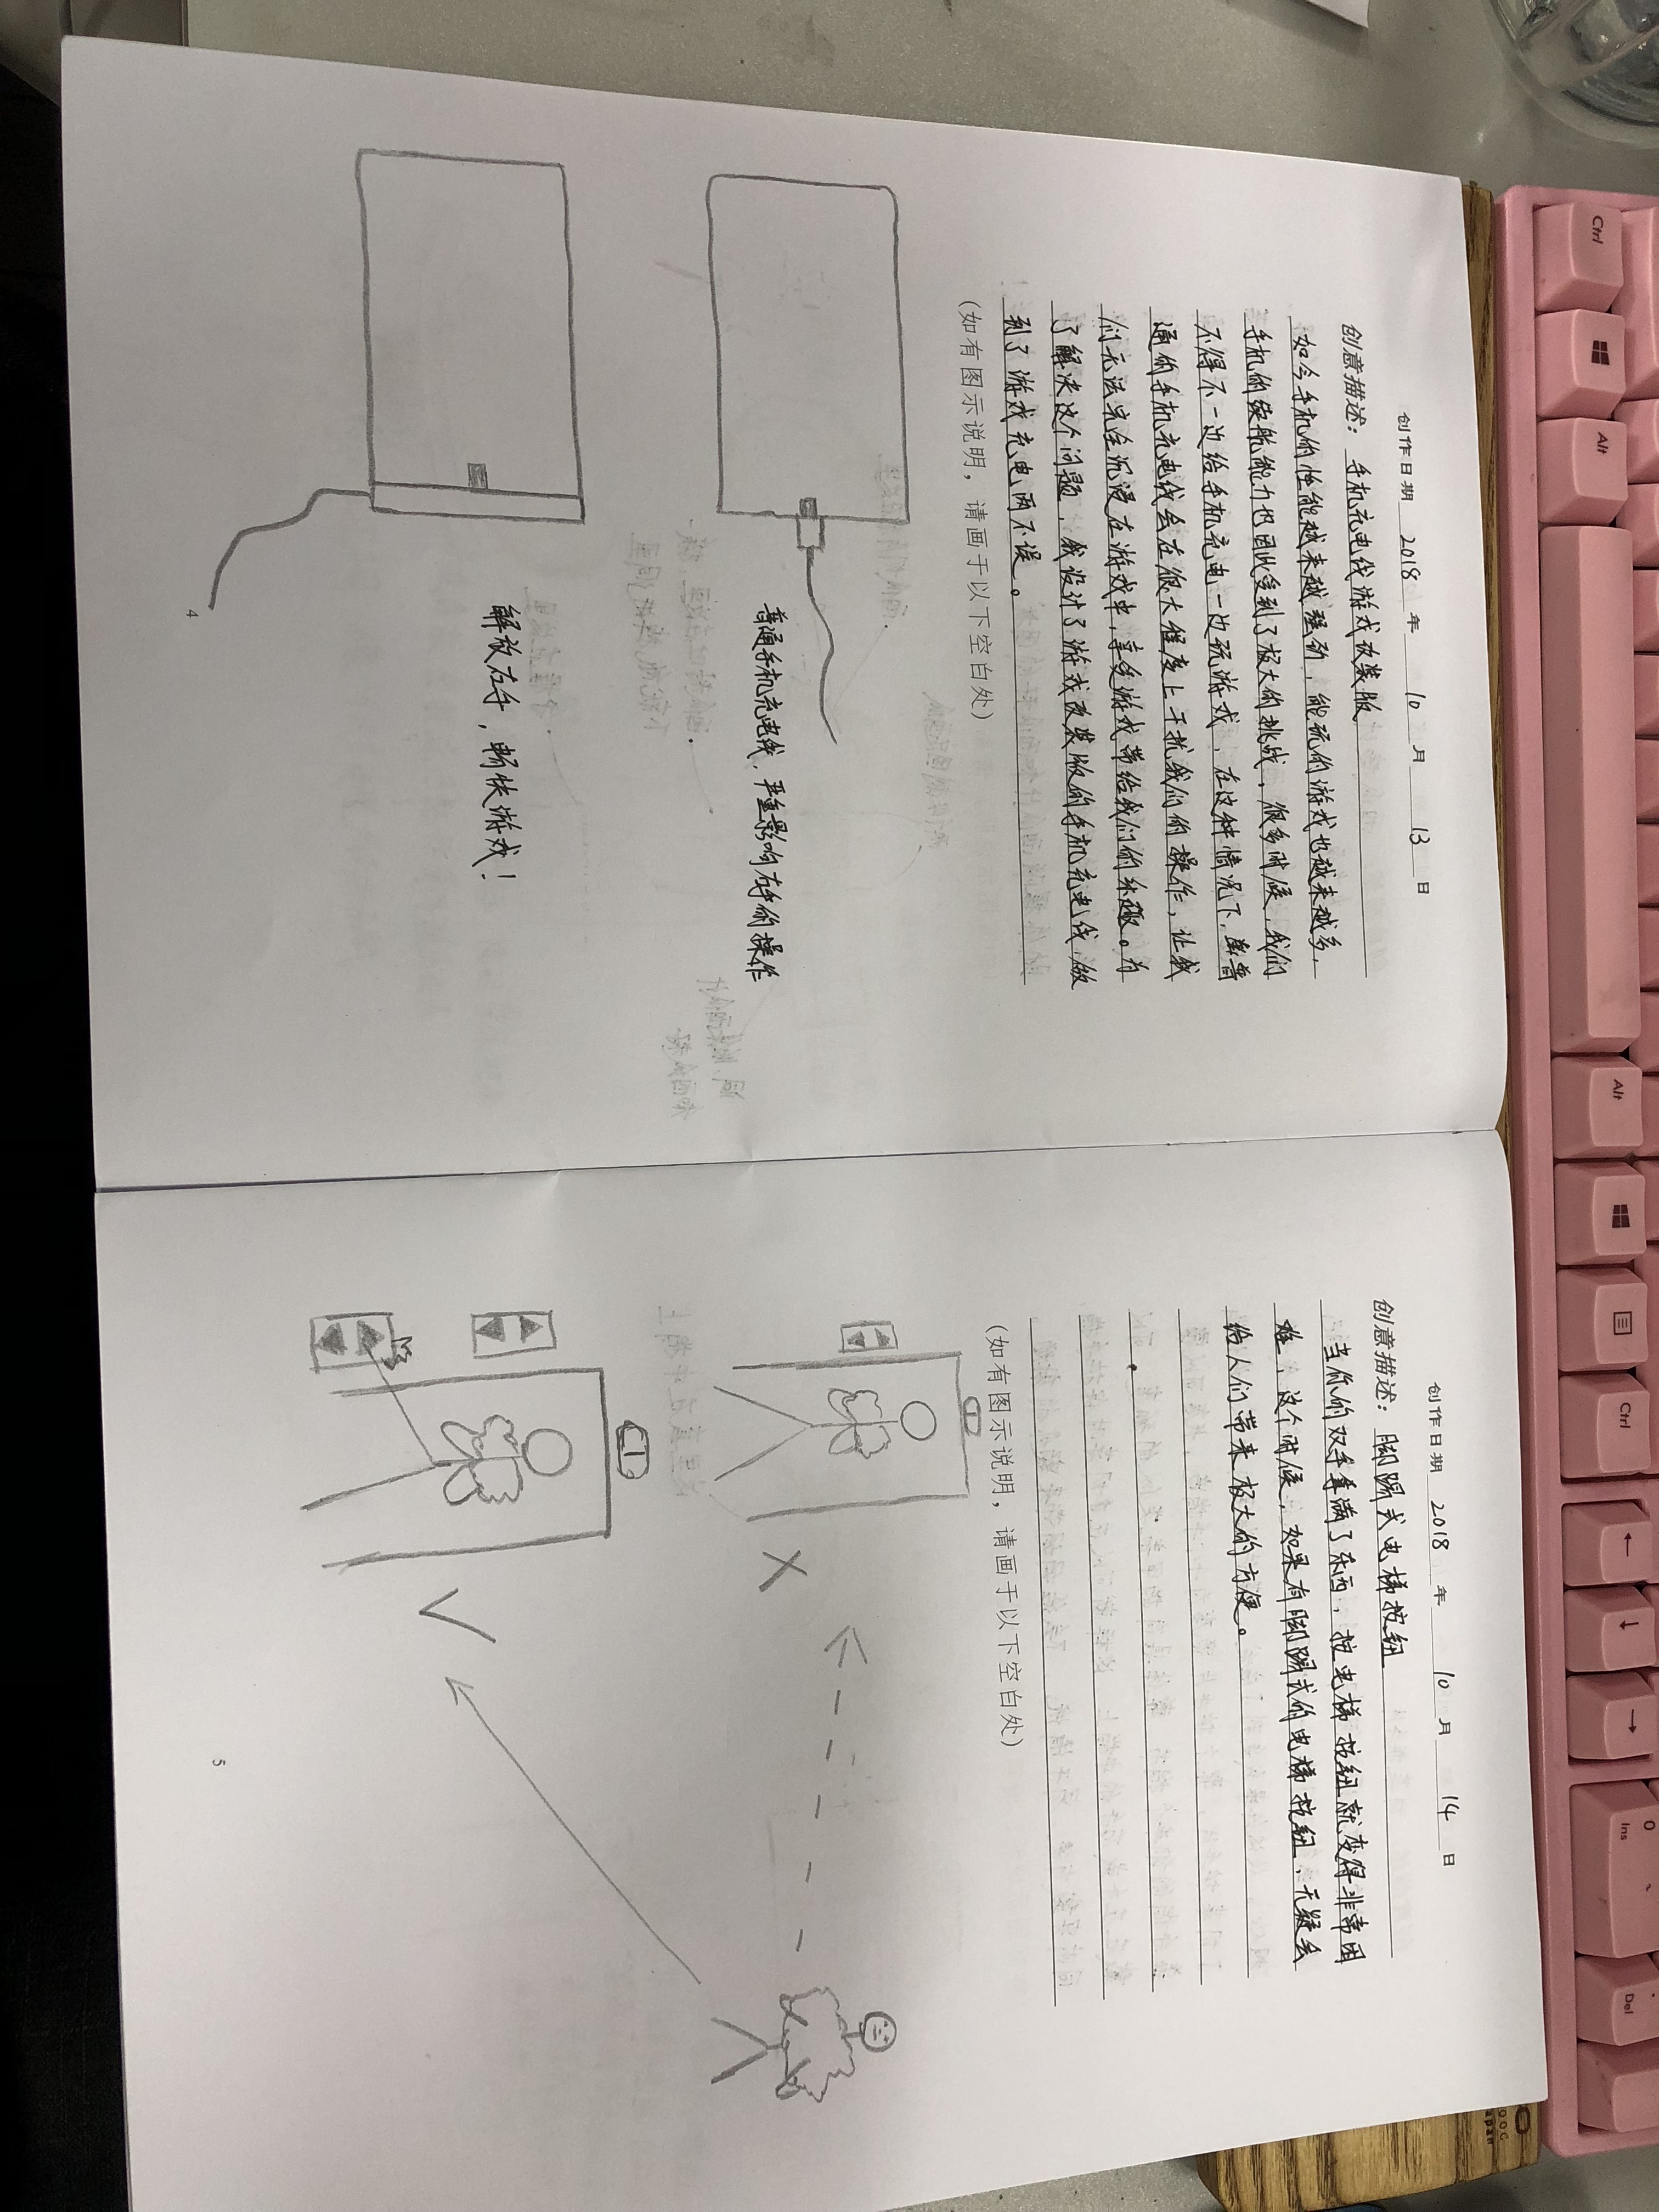 创作日期 2018 年 10 月 13 日
创意描述：手机充电线游戏改装版
如今手机的性能越来越强劲，能玩的游戏也越来越多，
手机的续航能力也因此受到了极大的挑战，很多时候，我们
不得不一边给手机充电一边玩游戏，在这种情况下，普
通的手机充电线会在很大程度上干扰我们的操作，让我
们无法完全沉浸在游戏中，享受游戏带给我们的乐趣。为
了解决这个问题，我设计了游戏改装版的手机充电线，做
到了游戏充电两不误。
（如有图示说明，请画于以下空白处）
普通手机充电线，严重影响右手的操作
解放右手，畅快游戏！
4
创作日期 2018 年 10 月 14 日
创意描述：脚踢式电梯按钮
当你的双手拿满了东西，按电梯按钮就变得非常困
难，这个时候，如果有脚踢式的电梯按钮，无疑会
给人们带来极大的方便。
（如有图示说明，请画于以下空白处）
5
Ctrl
Alt
Alt
Ctrl
←
↓
→
0
Ins
.
Del